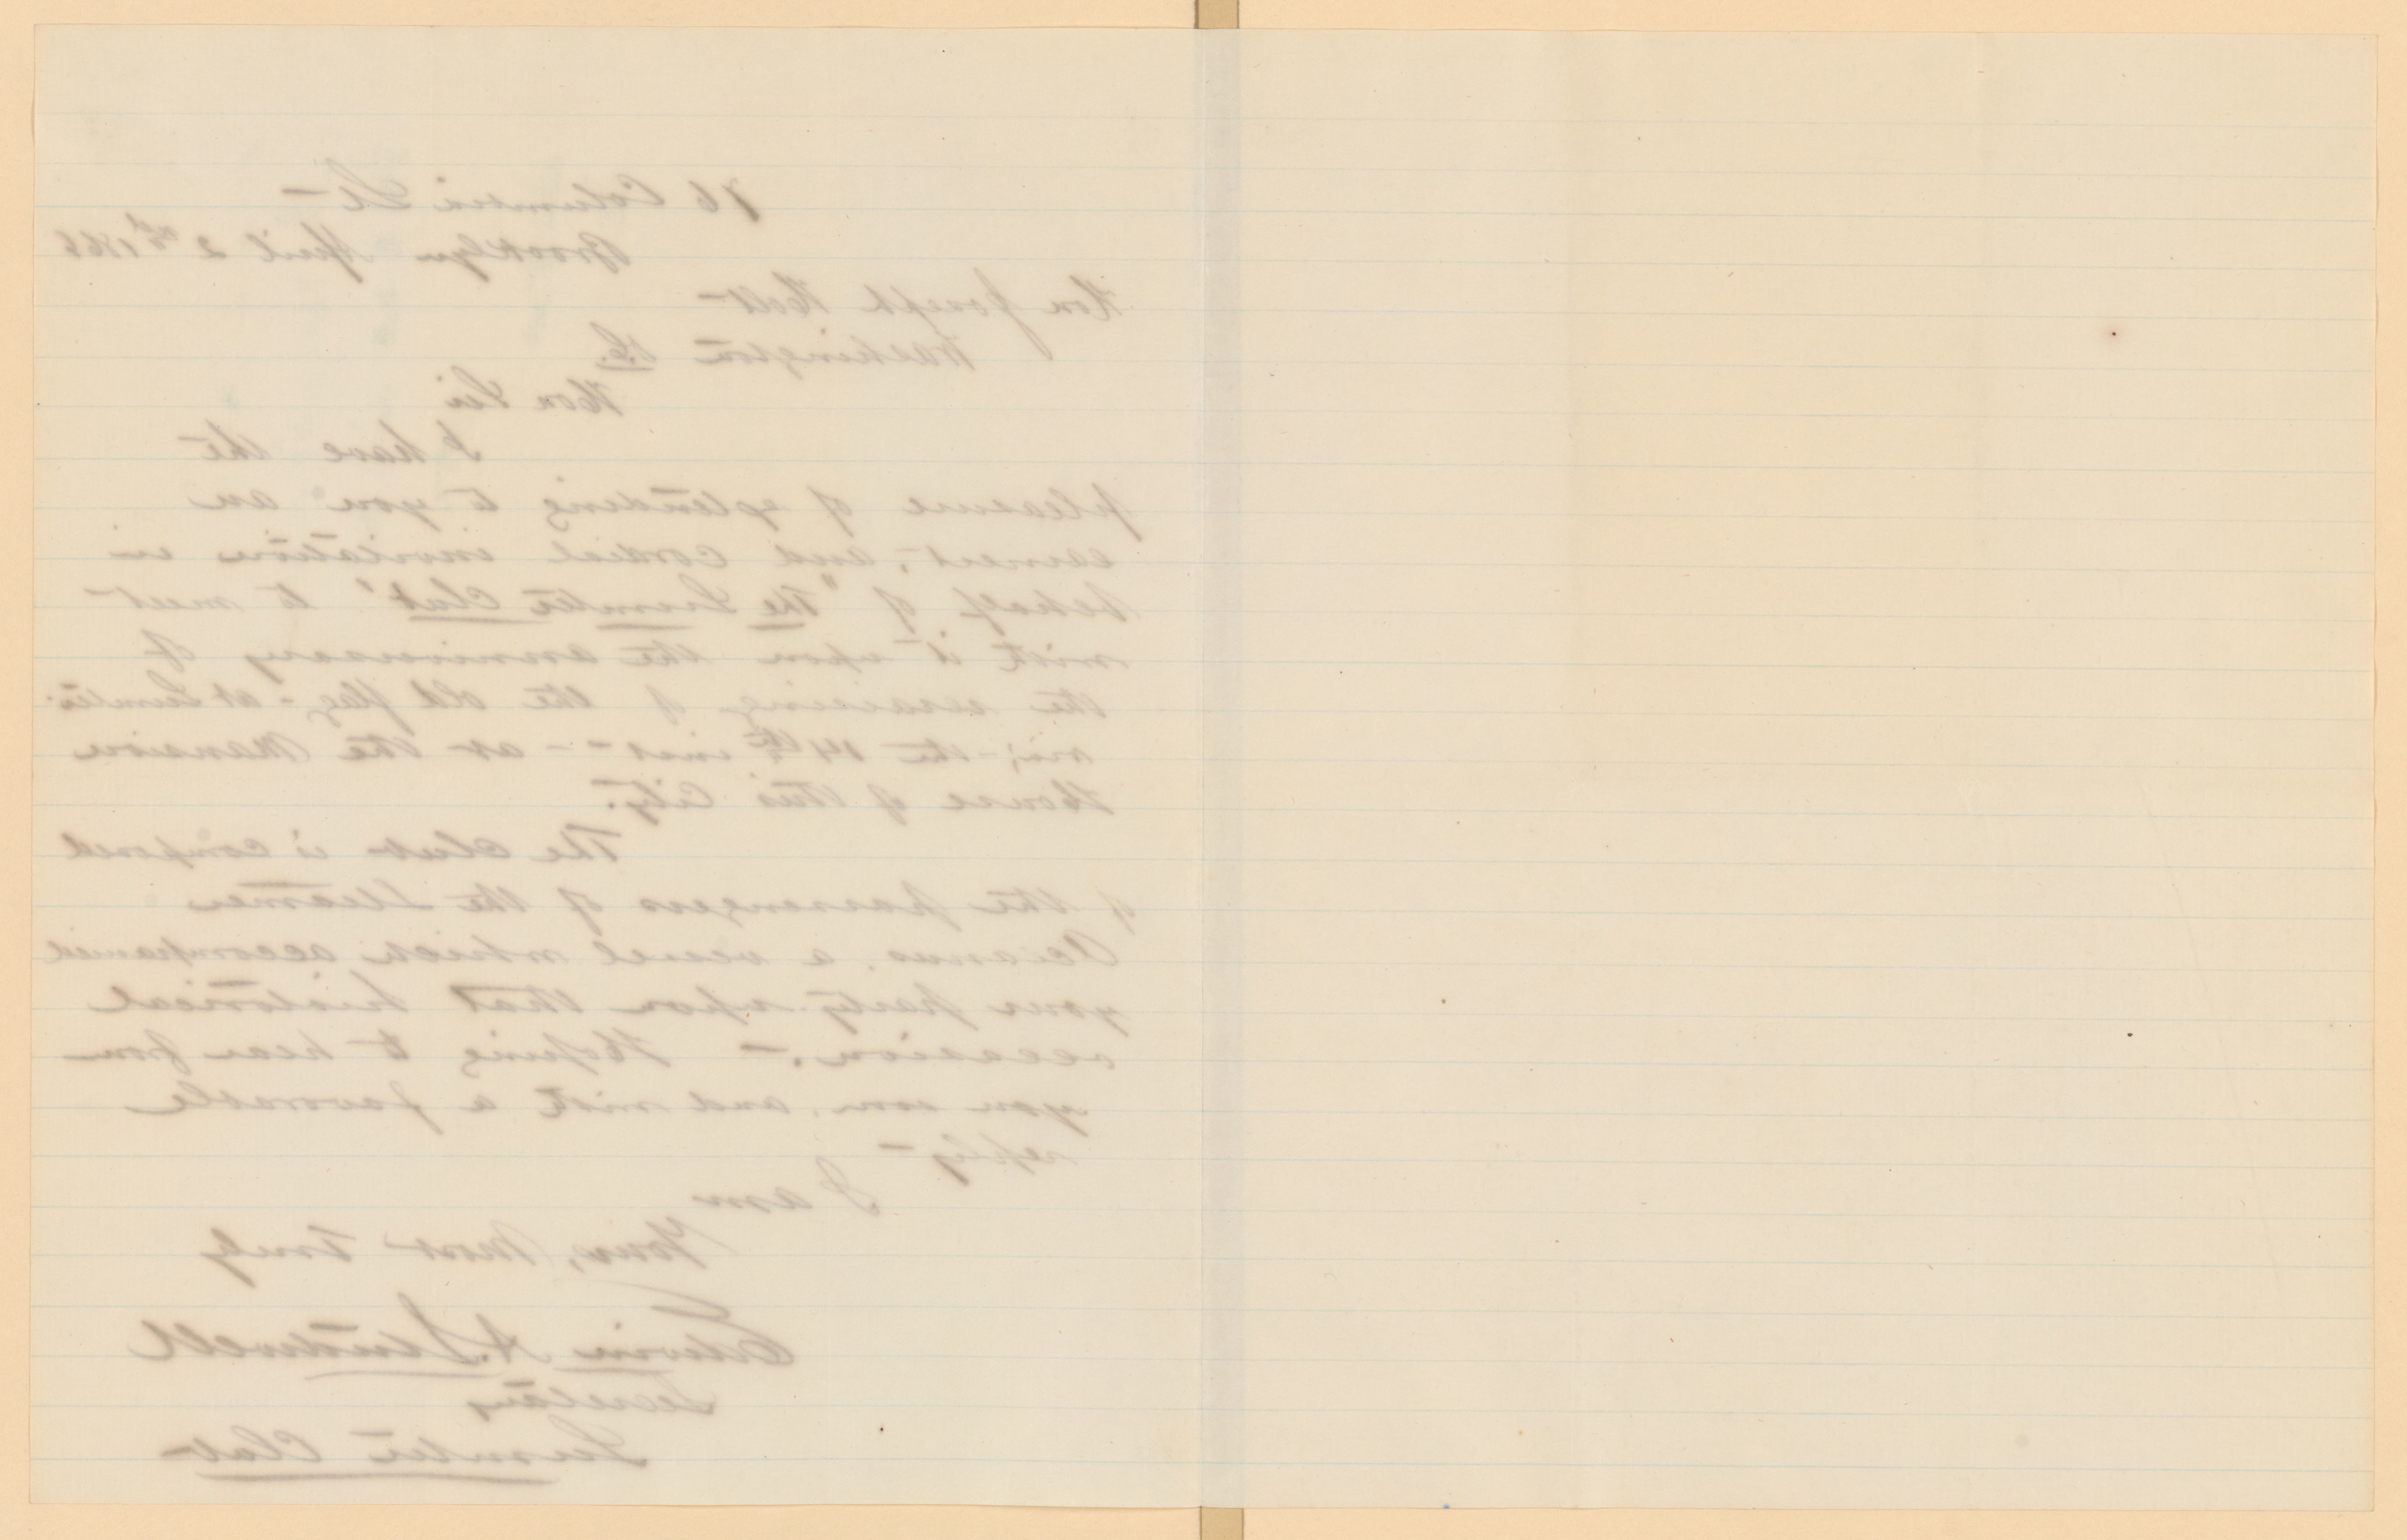 76 Columbia St
Brooklyn April 2nd 1868
Hon Joseph Holt
Washington D.C.
Hon Sir
I have the
pleasure of extending to you an
earnest, and cordial invitation in
behalf of "The Sumter Club" to meet
with it upon the anniversary of
the reraising of the old flag - at Sumter
viz; - the 14th inst - at the Mansion
House of this City.
The Club is composed
of the passengers of the Steamer
Oceanus, a vessel which accompanied
your party upon that historical
occasion. - Hoping to hear from
you soon, and with a favorable
reply -
I am
Yours, Most Truly
Edwin A. Studwell
Secretary
Sumter Club